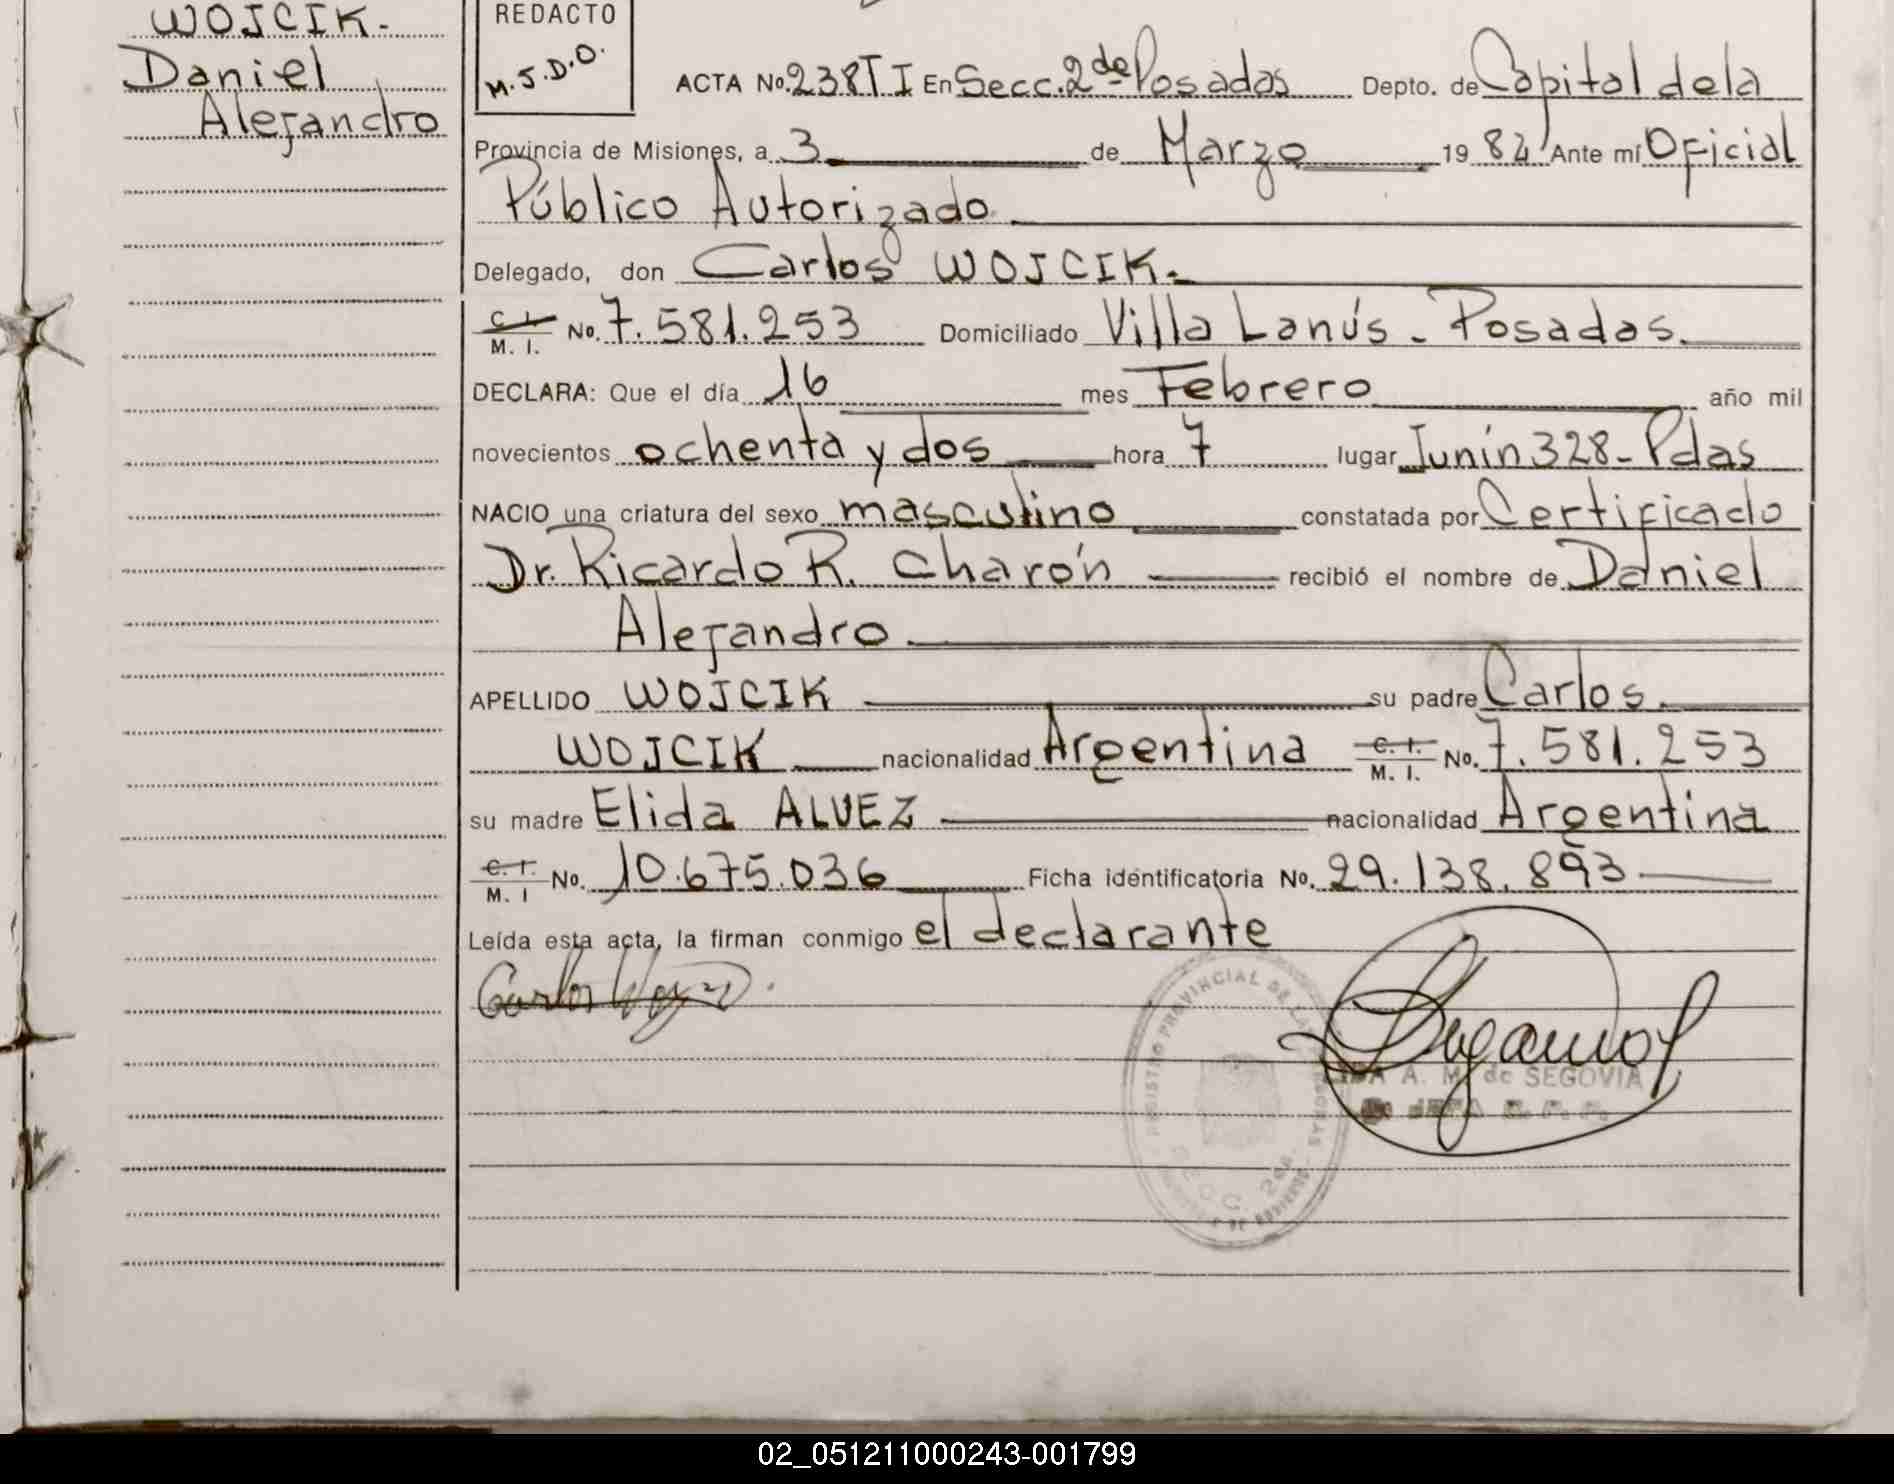 WOJCIK.
Daniel
Alejandro
REDACTO
M.J.D.O.
ACTA No. 238 T I En Secc. 2da de Posadas Depto. de Capital de la
Provincia de Misiones, a 3 de Marzo 1982 Ante mí Oficial
Público Autorizado
Delegado, don Carlos WOJCIK.
C. I. / M. I. No. 7.581.253 Domiciliado Villa Lanús - Posadas.
DECLARA: Que el día 16 mes Febrero año mil
novecientos ochenta y dos hora 7 lugar Junín 328 - Pdas
NACIO una criatura del sexo masculino constatada por Certificado
Dr. Ricardo R. Charón recibió el nombre de Daniel
Alejandro.
APELLIDO WOJCIK su padre Carlos
WOJCIK nacionalidad Argentina C. I. / M. I. No. 7.581.253
su madre Elida ALVEZ nacionalidad Argentina
C. I. / M. I No. 10.675.036 Ficha identificatoria No. 29.138.893
Leída esta acta, la firman conmigo el declarante
Carlos
REGISTRO PROVINCIAL DE LAS PERSONAS
SECC. 2da
A. M. de SEGOVIA
02_051211000243-001799